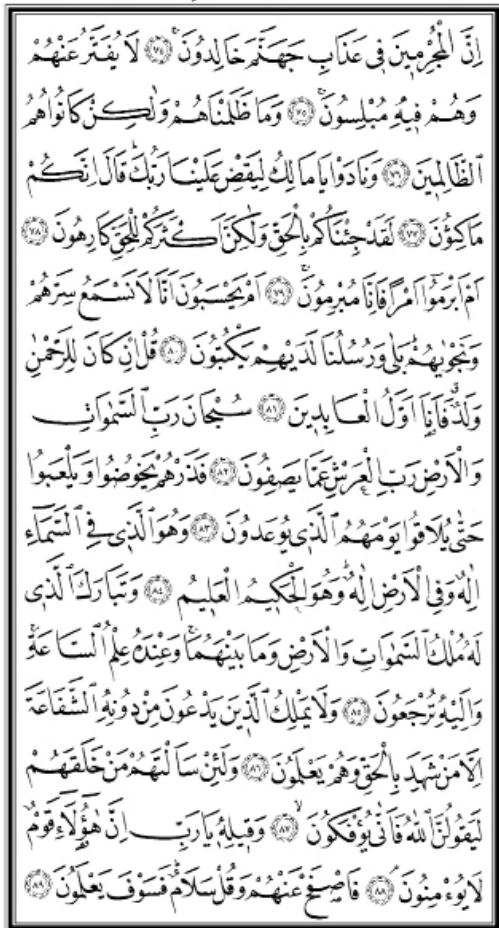 اِنَّ الْمُجْرِمِينَ فِي عَذَابِ جَهَنَّمَ خَالِدُونَ ﴿٧٤﴾ لَا يُفَتَّرُ عَنْهُمْ
وَهُمْ فِيهِ مُبْلِسُونَ ﴿٧٥﴾ وَمَا ظَلَمْنَاهُمْ وَلٰكِنْ كَانُوا هُمُ
الظَّالِمِينَ ﴿٧٦﴾ وَنَادَوْا يَا مَالِكُ لِيَقْضِ عَلَيْنَا رَبُّكَ قَالَ اِنَّكُمْ
مَاكِثُونَ ﴿٧٧﴾ لَقَدْ جِئْنَاكُمْ بِالْحَقِّ وَلٰكِنَّ اَكْثَرَكُمْ لِلْحَقِّ كَارِهُونَ ﴿٧٨﴾
اَمْ اَبْرَمُٓوا اَمْرًا فَاِنَّا مُبْرِمُونَ ﴿٧٩﴾ اَمْ يَحْسَبُونَ اَنَّا لَا نَسْمَعُ سِرَّهُمْ
وَنَجْوٰيهُمْ بَلٰى وَرُسُلُنَا لَدَيْهِمْ يَكْتُبُونَ ﴿٨٠﴾ قُلْ اِنْ كَانَ لِلرَّحْمٰنِ
وَلَدٌ فَاَنَا۬ اَوَّلُ الْعَابِدِينَ ﴿٨١﴾ سُبْحَانَ رَبِّ السَّمٰوَاتِ
وَالْاَرْضِ رَبِّ الْعَرْشِ عَمَّا يَصِفُونَ ﴿٨٢﴾ فَذَرْهُمْ يَخُوضُوا وَيَلْعَبُوا
حَتّٰى يُلَاقُوا يَوْمَهُمُ الَّذِي يُوعَدُونَ ﴿٨٣﴾ وَهُوَ الَّذِي فِي السَّمَٓاءِ
اِلٰهٌ وَفِي الْاَرْضِ اِلٰهٌ وَهُوَ الْحَكِيمُ الْعَلِيمُ ﴿٨٤﴾ وَتَبَارَكَ الَّذِي
لَهُ مُلْكُ السَّمٰوَاتِ وَالْاَرْضِ وَمَا بَيْنَهُمَا وَعِنْدَهُ عِلْمُ السَّاعَةِ
وَاِلَيْهِ تُرْجَعُونَ ﴿٨٥﴾ وَلَا يَمْلِكُ الَّذِينَ يَدْعُونَ مِنْ دُونِهِ الشَّفَاعَةَ
اِلَّا مَنْ شَهِدَ بِالْحَقِّ وَهُمْ يَعْلَمُونَ ﴿٨٦﴾ وَلَئِنْ سَاَلْتَهُمْ مَنْ خَلَقَهُمْ
لَيَقُولُنَّ اللّٰهُ فَاَنّٰى يُؤْفَكُونَ ﴿٨٧﴾ وَقِيلِهِ يَا رَبِّ اِنَّ هٰٓؤُ۬لَٓاءِ قَوْمٌ
لَا يُؤْمِنُونَ ﴿٨٨﴾ فَاصْفَحْ عَنْهُمْ وَقُلْ سَلَامٌ فَسَوْفَ يَعْلَمُونَ ﴿٨٩﴾